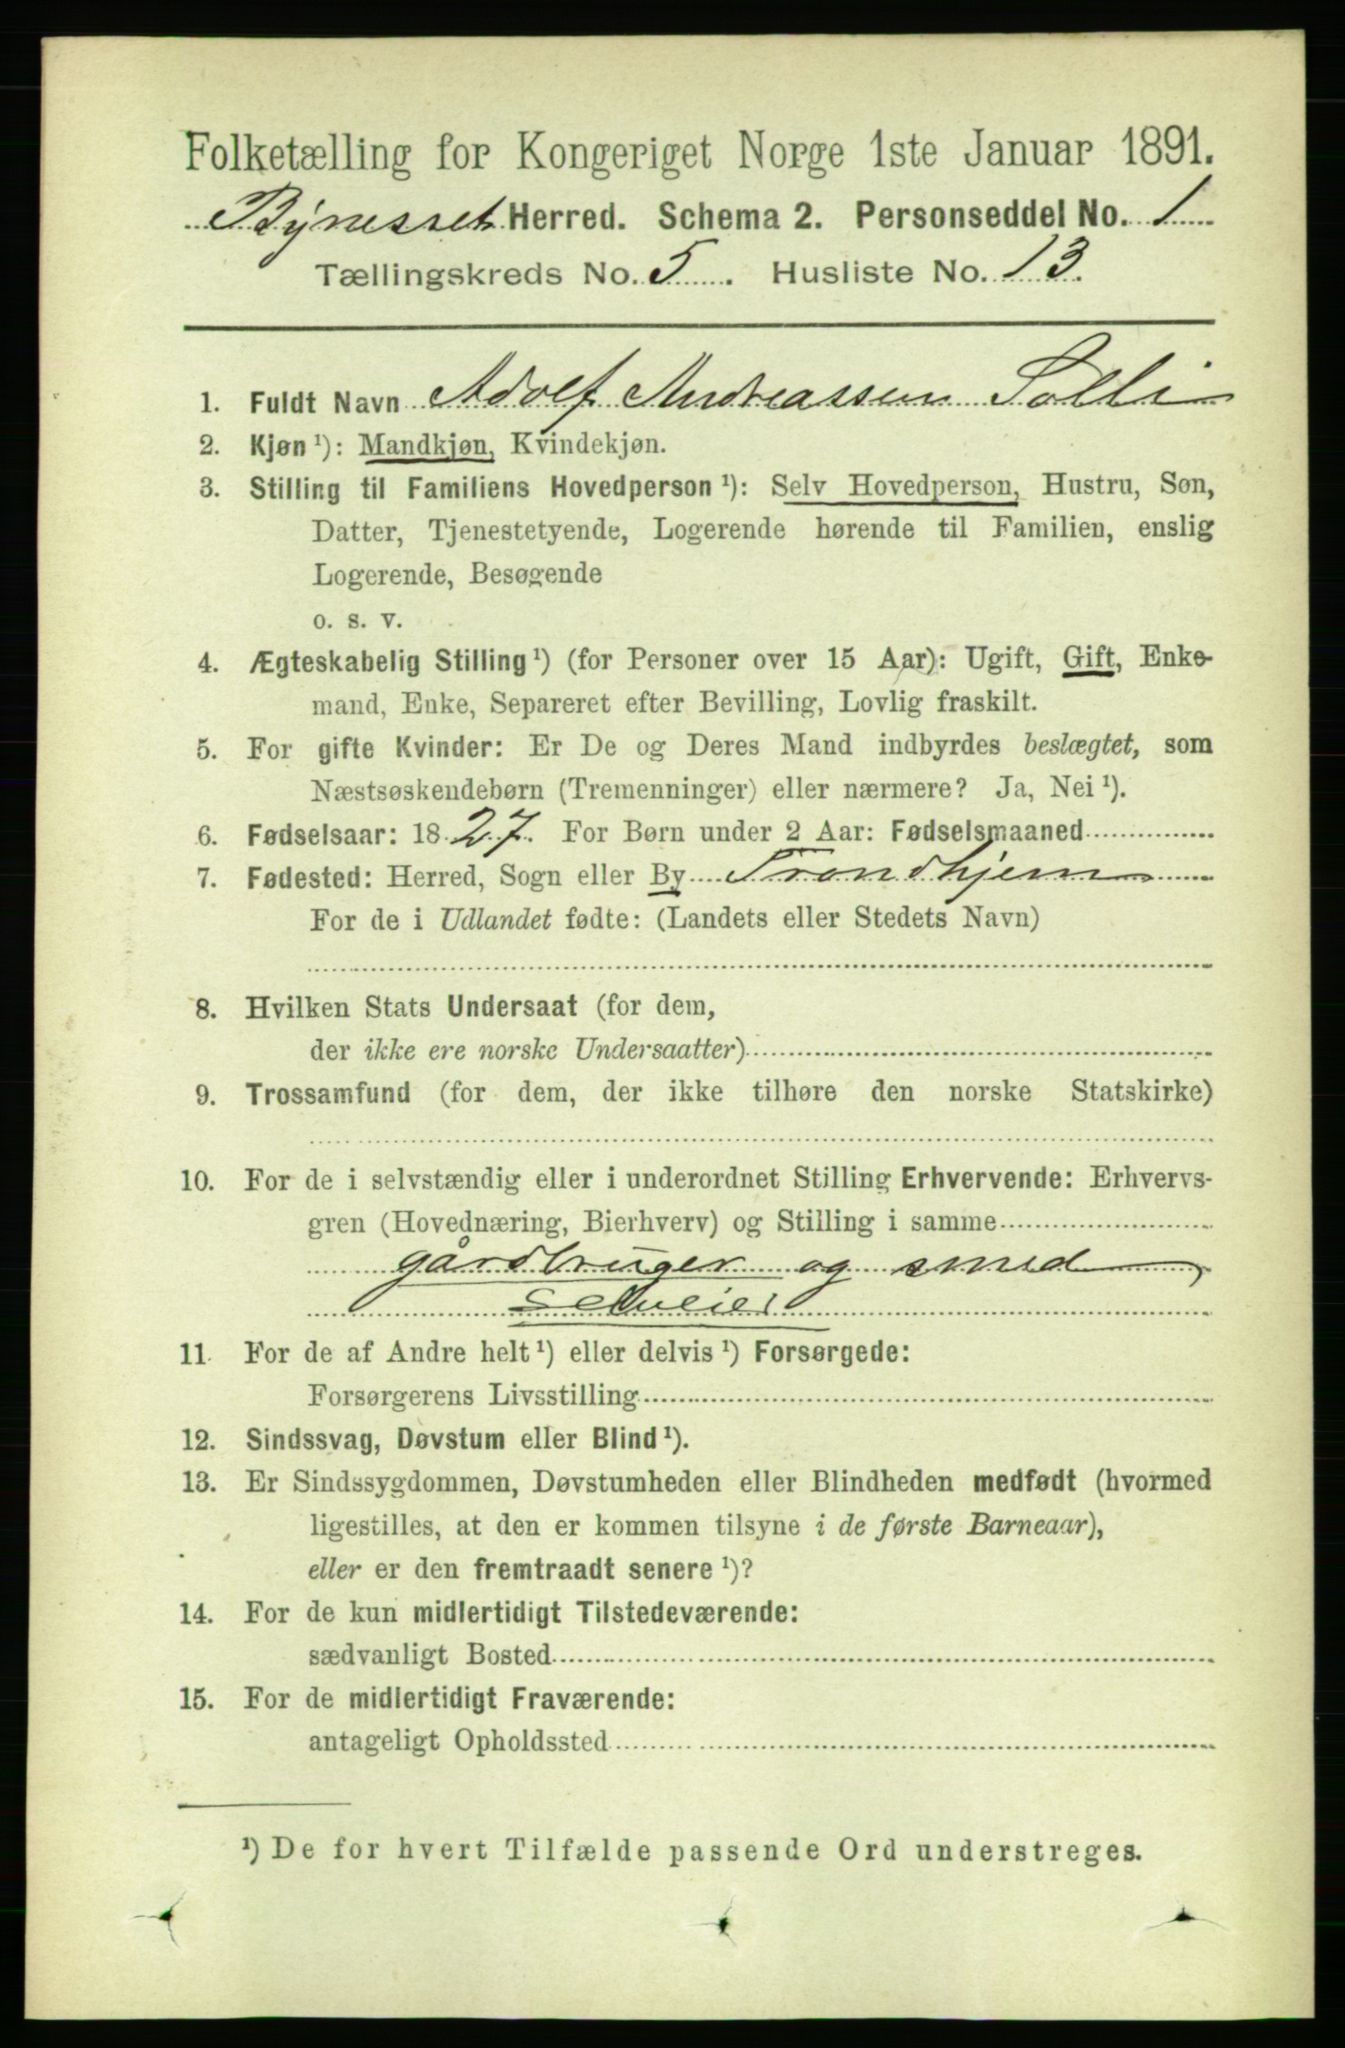 Folketælling for Kongeriget Norge 1ste Januar 1891.
Bynesset Herred. Schema 2. Personseddel No. 1
Tællingskreds No. 5. Husliste No. 13.
1. Fuldt Navn Adolf Andreassen Solli
2. Kjøn ¹): Mandkjøn, Kvindekjøn.
3. Stilling til Familiens Hovedperson ¹): Selv Hovedperson, Hustru, Søn,
Datter, Tjenestetyende, Logerende hørende til Familien, enslig
Logerende, Besøgende
o. s. v.
4. Ægteskabelig Stilling ¹) (for Personer over 15 Aar): Ugift, Gift, Enke-
mand, Enke, Separeret efter Bevilling, Lovlig fraskilt.
5. For gifte Kvinder: Er De og Deres Mand indbyrdes beslægtet, som
Næstsøskendebørn (Tremenninger) eller nærmere? Ja, Nei ¹).
6. Fødselsaar: 1827. For Børn under 2 Aar: Fødselsmaaned
7. Fødested: Herred, Sogn eller By Trondhjem
For de i Udlandet fødte: (Landets eller Stedets Navn)
8. Hvilken Stats Undersaat (for dem,
der ikke ere norske Undersaatter)
9. Trossamfund (for dem, der ikke tilhøre den norske Statskirke)
10. For de i selvstændig eller i underordnet Stilling Erhvervende: Erhvervs-
gren (Hovednæring, Bierhverv) og Stilling i samme
gårdbruger og smed
Selveier
11. For de af Andre helt ¹) eller delvis ¹) Forsørgede:
Forsørgerens Livsstilling
12. Sindssvag, Døvstum eller Blind ¹).
13. Er Sindssygdommen, Døvstumheden eller Blindheden medfødt (hvormed
ligestilles, at den er kommen tilsyne i de første Barneaar),
eller er den fremtraadt senere ¹)?
14. For de kun midlertidigt Tilstedeværende:
sædvanligt Bosted
15. For de midlertidigt Fraværende:
antageligt Opholdssted
¹) De for hvert Tilfælde passende Ord understreges.